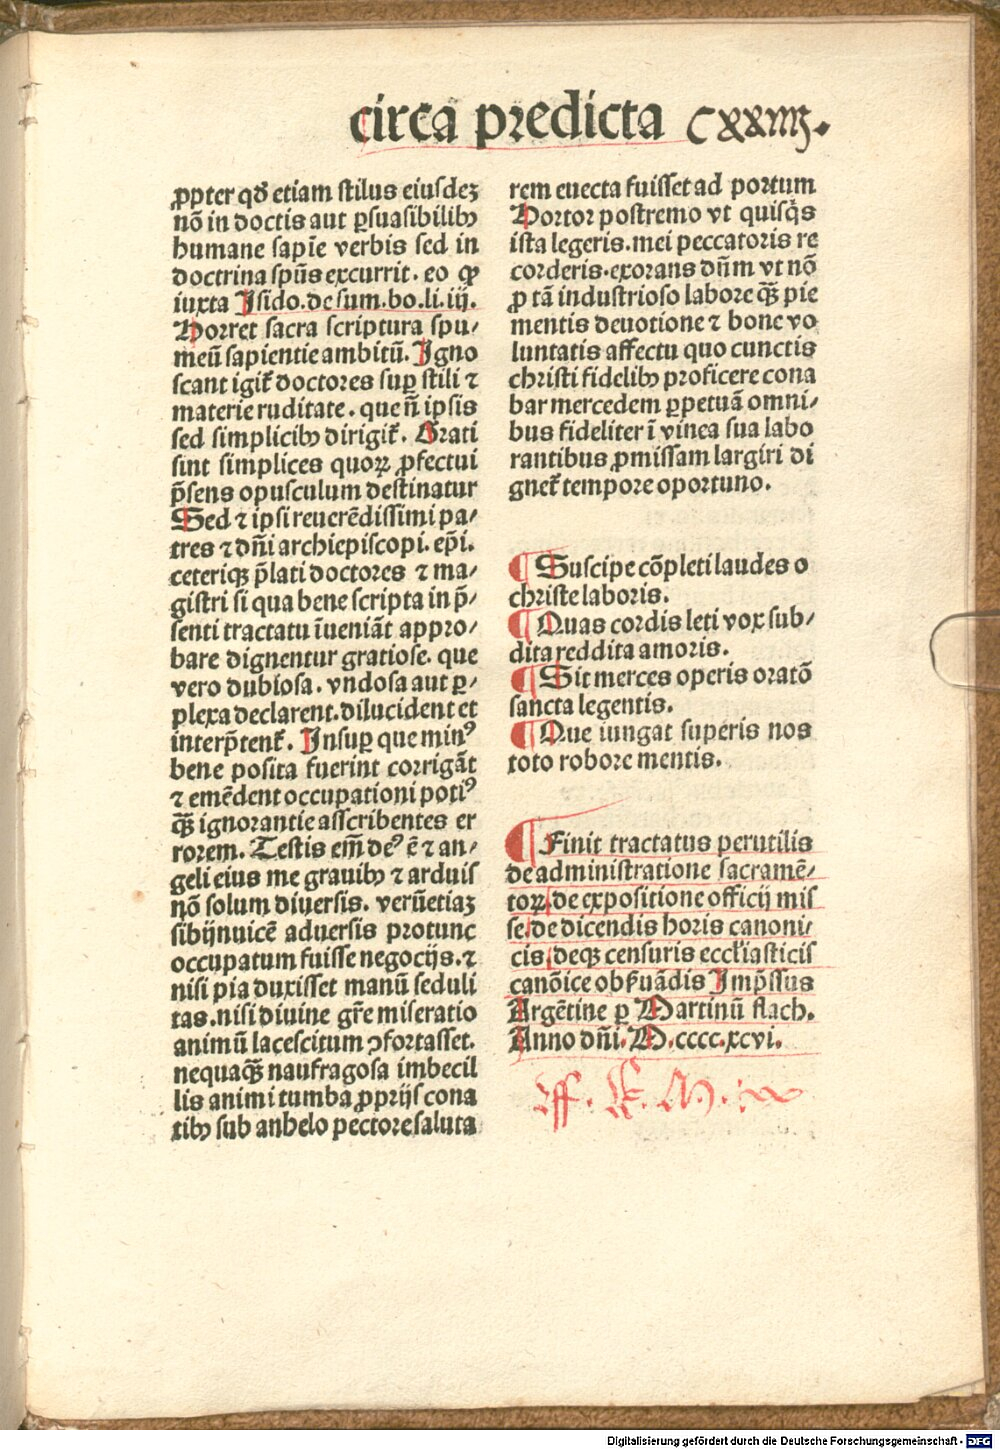 circa predicta cxxiiij.
ꝓpter qđ etiam stilus eiusdeꝫ
nō in doctis aut ꝑsuasibilibꝰ
humane sapīe verbis sed in
doctrina spūs excurrit. eo ꝙ
iuxta Isido. de sum. bo. li. iij.
Horret sacra scriptura spu⸗
meū sapientie ambitū. Igno
scant igit̄ doctores suꝑ stili ⁊
materie ruditate. que n̄ ipsis
sed simplicibꝰ dirigit̄. Grati
sint simplices quoꝝ ꝓfectui
p̄sens opusculum destinatur
Sed ⁊ ipsi reuerēdissimi pa⸗
tres ⁊ dn̄i archiepiscopi. ep̄i.
ceteriqꝫ p̄lati doctores ⁊ ma⸗
gistri si qua bene scripta in p̄⸗
senti tractatu īueniāt appro⸗
bare dignentur gratiose. que
vero dubiosa. vndosa aut ꝑ⸗
plexa declarent. dilucident et
interp̄tent̄. Insuꝑ que minꝰ
bene posita fuerint corrigāt
⁊ emēdent occupationi potiꝰ
qꝫ̄ ignorantie asscribentes er
rorem. Testis em̄ deꝰ ē ⁊ an⸗
geli eius me grauibꝰ ⁊ arduis
nō solum diuersis. verūetiaꝫ
sibijnuicē aduersis protunc
occupatum fuisse negocijs. ⁊
nisi pia duxisset manū seduli
tas. nisi diuine gr̄e miseratio
animū lacescitum ↄfortasset.
nequaqꝫ̄ naufragosa imbecil
lis animi tumba ꝓprijs cona
tibꝰ sub anhelo pectore saluta
rem euecta fuisset ad portum
Hortor postremo vt quisq̄s
ista legeris. mei peccatoris re
corderis. exorans dn̄m vt nō
ꝓ tā industrioso labore qꝫ̄ pie
mentis deuotione ⁊ bone vo
luntatis affectu quo cunctis
christi fidelibꝰ proficere cona
bar mercedem ꝑpetuā omni⸗
bus fideliter ī vinea sua labo
rantibus ꝓmissam largiri di
gnet̄ tempore oportuno.
¶ Suscipe cōpleti laudes o
christe laboris.
¶ Quas cordis leti vox sub⸗
dita reddita amoris.
¶ Sit merces operis oratō
sancta legentis.
¶ Que iungat superis nos
toto robore mentis.
¶ Finit tractatus perutilis
de administratione sacramē⸗
toꝝ de expositione officij mis
se. de dicendis horis canoni⸗
cis deqꝫ censuris eccl̄iasticis
canōice obẜuādis Imp̄ssus
Argētine ꝑ Martinū flach.
Anno dn̄i. M.cccc.xcvi.
Digitalisierung gefördert durch die Deutsche Forschungsgemeinschaft - DFG